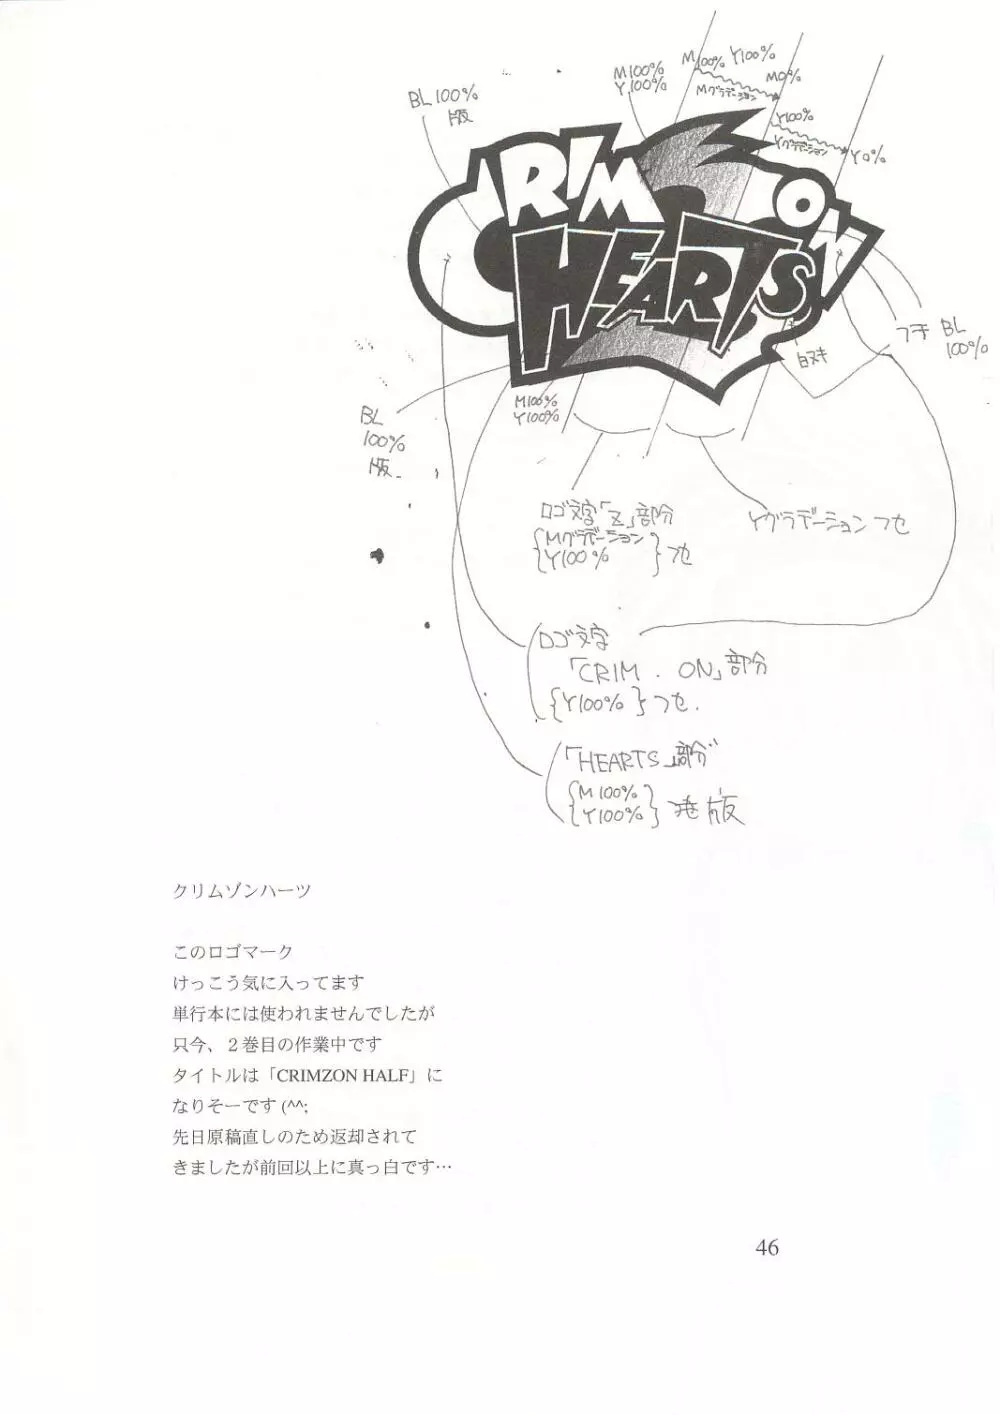 M100% Y100%
M0%
Mグラデーション
M100%
Y100%
BL100%
版
Y100%
Yグラデーション
Y0%
CRIMZON
HEARTS
フチ BL
100%
白ヌキ
M100%
Y100%
BL
100%
版
ロゴ文字「Z」部分
Mグラデーション
Y100%
フセ
Yグラデーション フセ
ロゴ文字
「CRIM . ON」部分
{Y100%}フセ.
「HEARTS」部分
M100%
Y100%
版
クリムゾンハーツ
このロゴマーク
けっこう気に入ってます
単行本には使われませんでしたが
只今、２巻目の作業中です
タイトルは「CRIMZON HALF」に
なりそーです(^^;
先日原稿直しのため返却されて
きましたが前回以上に真っ白です…
46